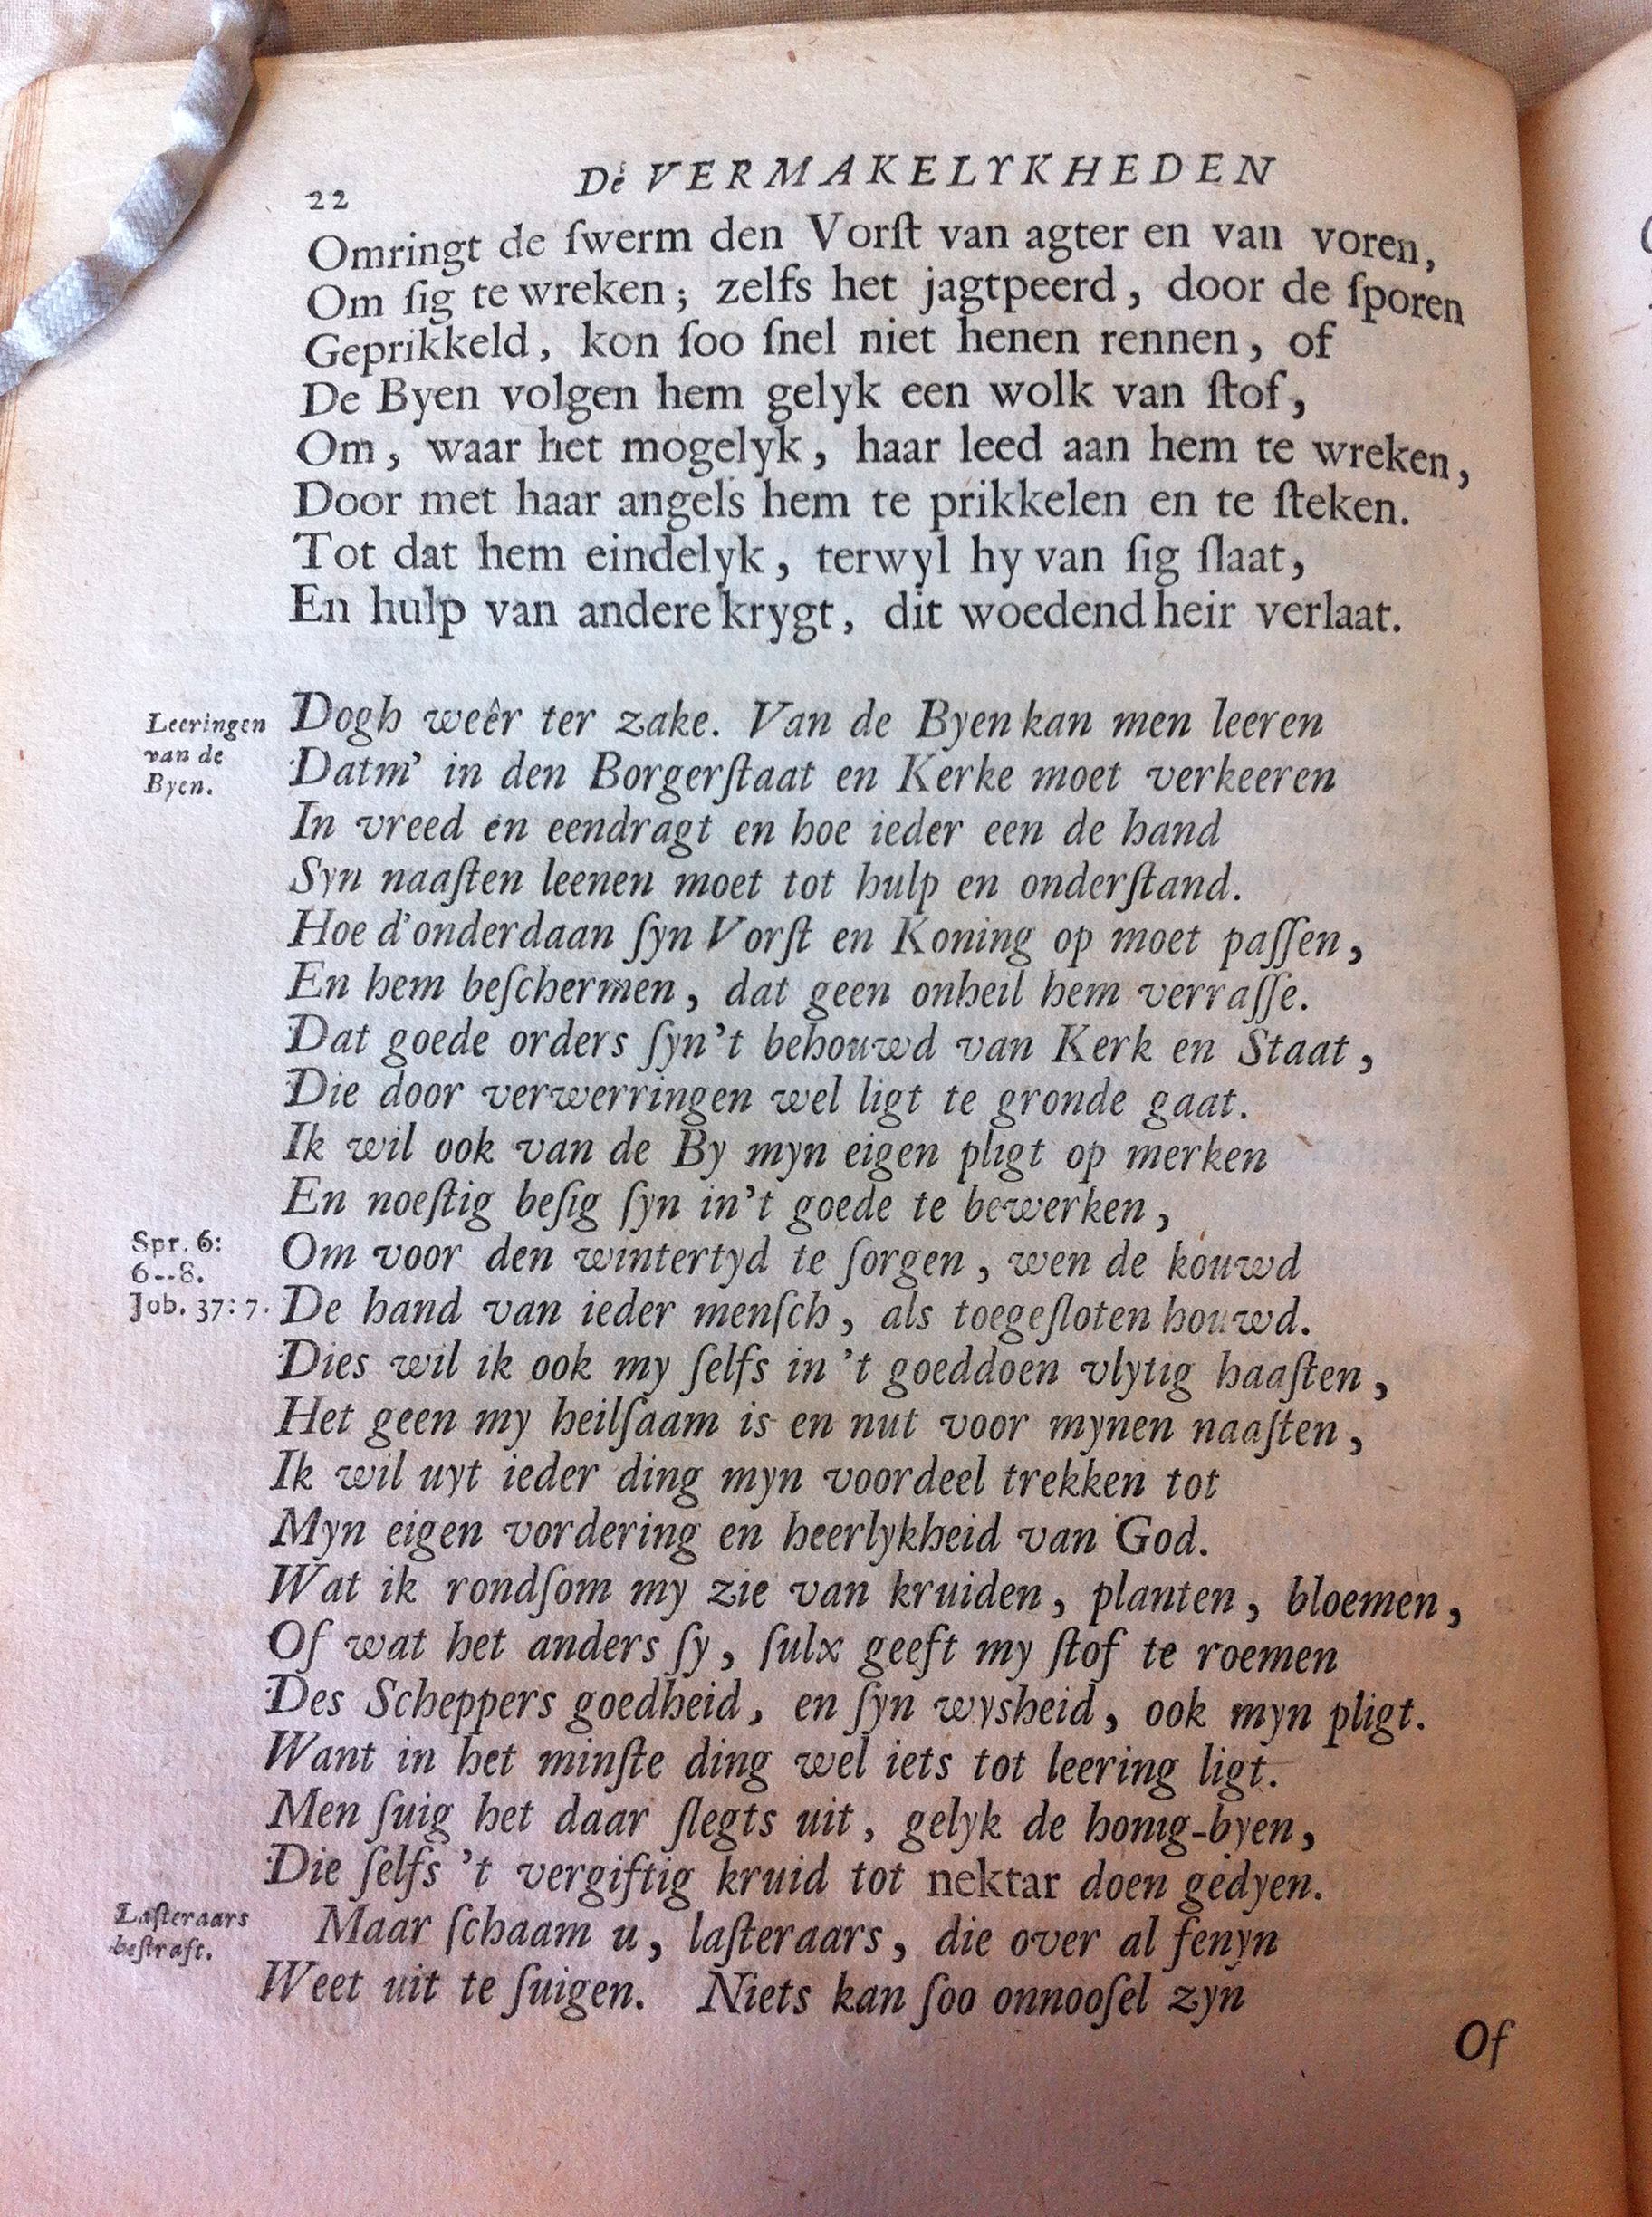 22
De VERMAKELYKHEDEN
Omringt de ſwerm den Vorſt van agter en van voren,
Om ſig te wreken; zelfs het jagtpeerd, door de ſporen
Geprikkeld, kon ſoo ſnel niet henen rennen, of
De Byen volgen hem gelyk een wolk van ſtof,
Om, waar het mogelyk, haar leed aan hem te wreken,
Door met haar angels hem te prikkelen en te ſteken.
Tot dat hem eindelyk, terwyl hy van ſig ſlaat,
En hulp van andere krygt, dit woedend heir verlaat.
Leeringen
van de
Byen.
Dogh weêr ter zake. Van de Byen kan men leeren
Datm' in den Borgerſtaat en Kerke moet verkeeren
In vreed en eendragt en hoe ieder een de hand
Syn naaſten leenen moet tot hulp en onderſtand.
Hoe d'onderdaan ſyn Vorſt en Koning op moet paſſen,
En hem beſchermen, dat geen onheil hem verraſſe.
Dat goede orders ſyn't behouwd van Kerk en Staat,
Die door verwerringen wel ligt te gronde gaat.
Ik wil ook van de By myn eigen pligt op merken
En noeſtig beſig ſyn in't goede te bewerken,
Spr. 6:
6--8.
Job. 37: 7.
Om voor den wintertyd te ſorgen, wen de kouwd
De hand van ieder menſch, als toegeſloten houwd.
Dies wil ik ook my ſelfs in 't goeddoen vlytig haaſten,
Het geen my heilſaam is en nut voor mynen naaſten,
Ik wil uyt ieder ding myn voordeel trekken tot
Myn eigen vordering en heerlykheid van God.
Wat ik rondſom my zie van kruiden, planten, bloemen,
Of wat het anders ſy, ſulx geeft my ſtof te roemen
Des Scheppers goedheid, en ſyn wysheid, ook myn pligt.
Want in het minſte ding wel iets tot leering ligt.
Men ſuig het daar ſlegts uit, gelyk de honig-byen,
Die ſelfs 't vergiftig kruid tot nektar doen gedyen.
Laſteraars
beſtraft.
Maar ſchaam u, laſteraars, die over al fenyn
Weet uit te ſuigen. Niets kan ſoo onnooſel zyn
Of